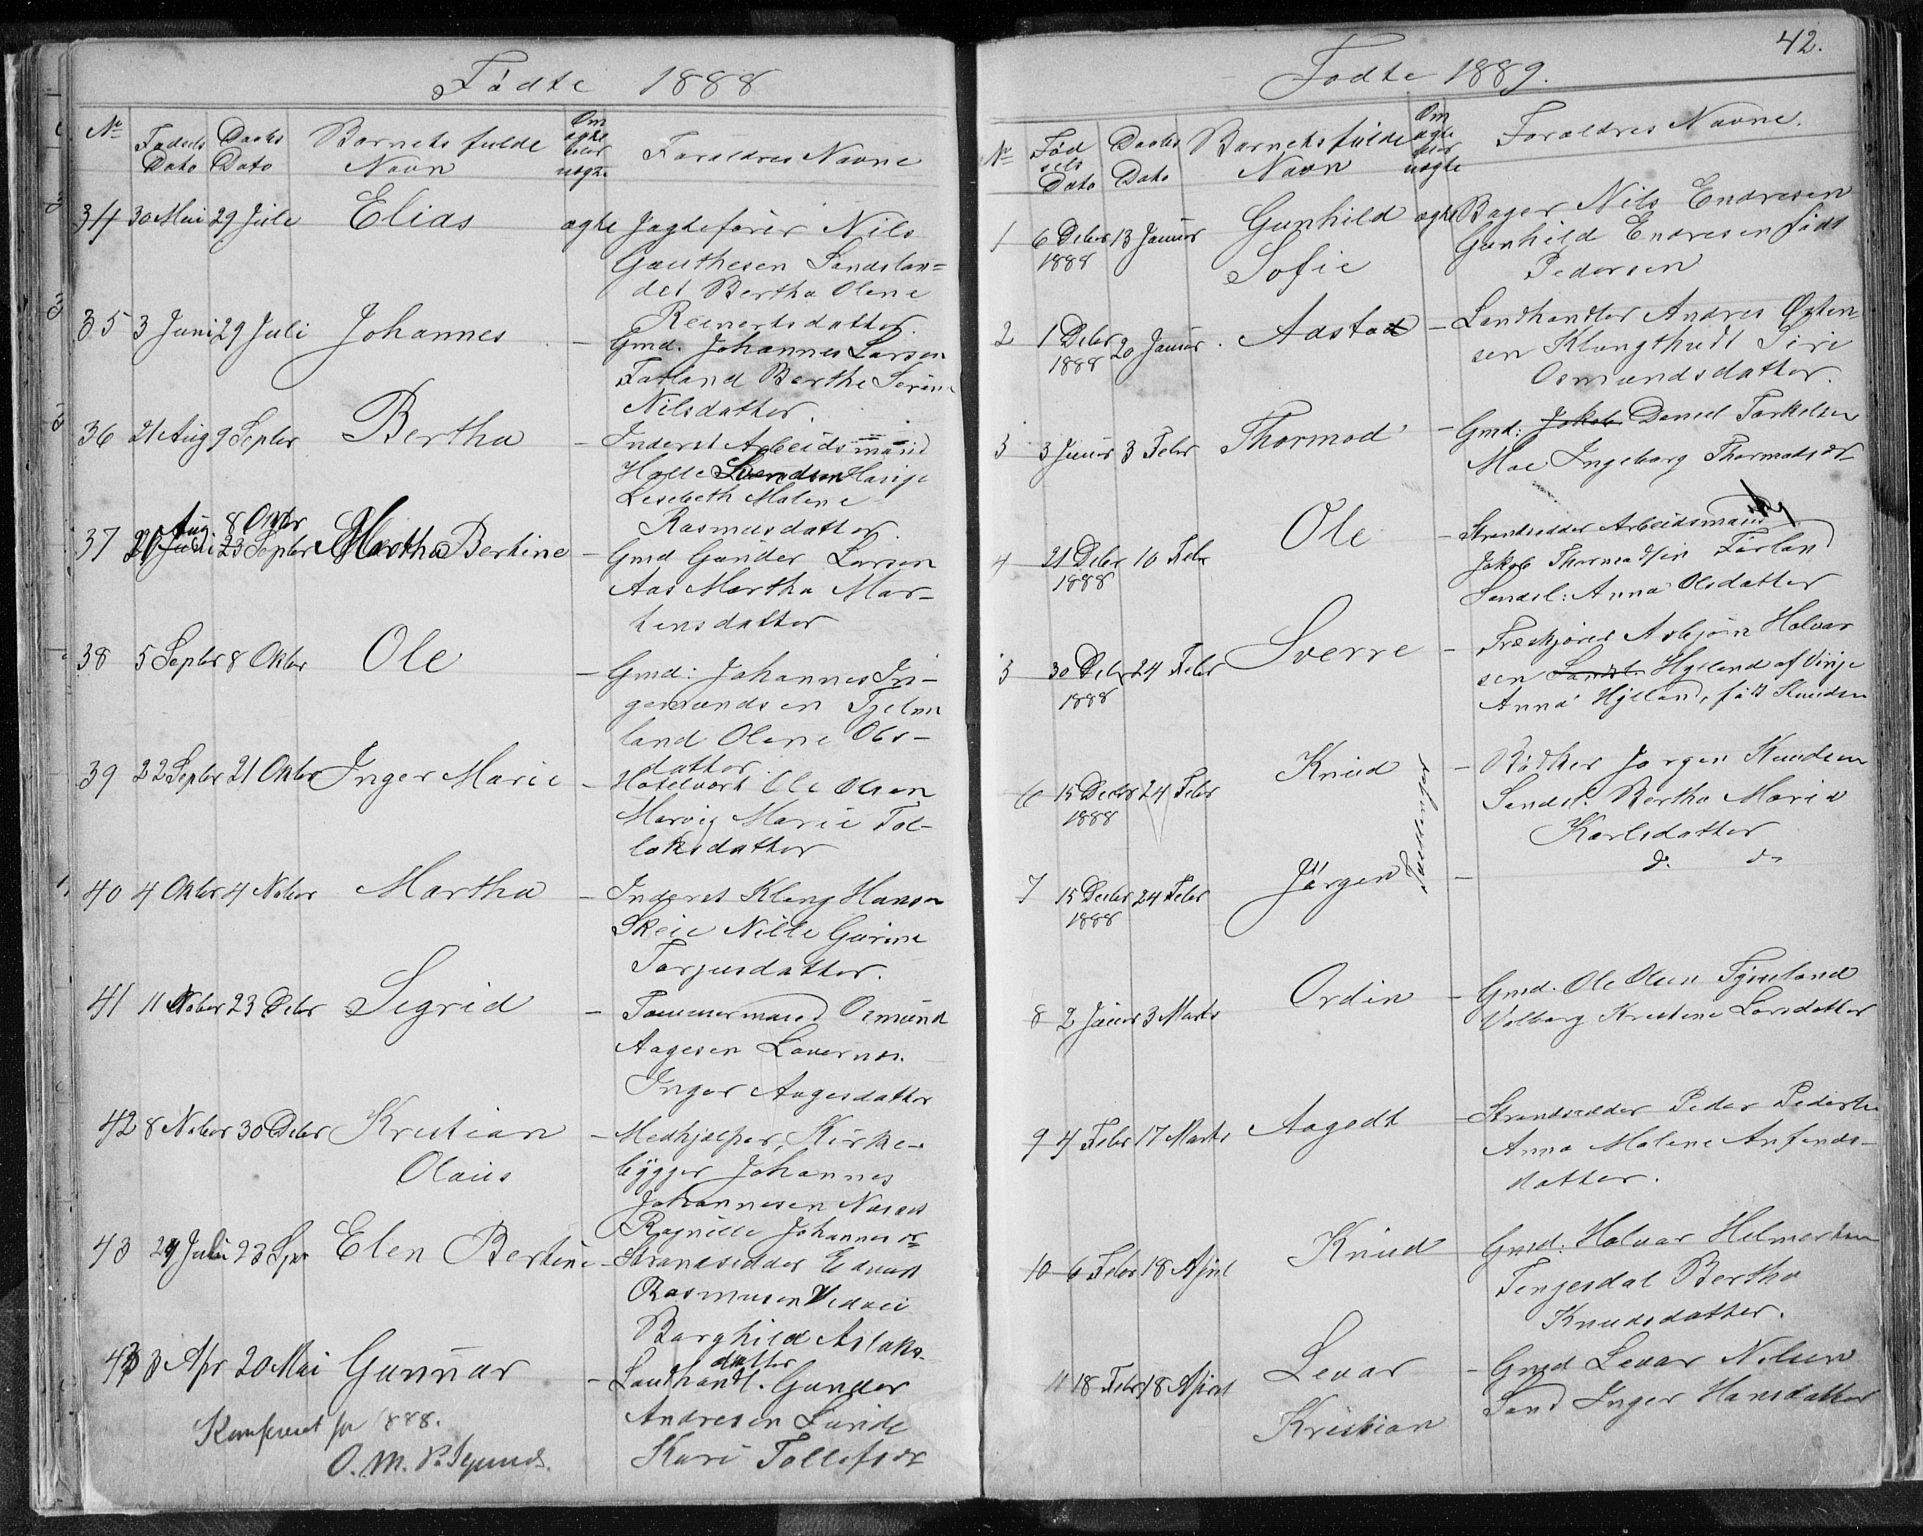 Fødte 1888
No Fødsels Dato Daabs Dato Barnets fulde Navn Om ægte eller uægte Forældres Navne
34 30 Mai 29 Juli Elias ægte Jagtefører Nils
Gauthesen Sandslan=
det Bertha Oline
Reinertsdatter.
35 3 Juni 29 Juli Johannes - Gmd. Johannes Larsen
Farland Berthe Serine
Nilsdatter.
36 21 Aug 9 Septbr Bertha - Inderst Arbeidsmand
Halle Svendsen
Lisebeth Malene
Rasmusdatter.
37 Aug. 8 Oktbr
Juli 23 Septbr Martha Bertine - Gmd Gunder Larsen
Aas Martha Mor-
tensdatter
38 5 Septbr 8 Oktbr Ole - Gmd: Johannes In-
gemundsen Tjelme
land Oline Ols-
datter.
39 22 Septbr 21 Oktbr Inger Marie - Hotelvært Ole Olsen
Marvig Marie Tol-
laksdatter
40 4 Oktbr 4 Novbr Martha - Inderst Kleng Hansen
Skeie Nille Gurine
Torjusdatter.
41 11 Novbr 23 Debr Sigrid - Tømmermand Osmund
Aagesen Lovernes.
Inger Aagesdatter
42 8 Novbr 30 Debr Kristian - Medhjælper, Kirke-
Olaus bygger Johannes
Johannesen Næsset
Ragnille Johannesdr
43 29 Juli 23 Spr Elen Bertine - Strandsidder Edvard
Rasmusen Vedvei
Borghild Aslaks-
datter
43 3 Apr 20 Mai Gunnar - Landhandl. Gunder
Andresen Lunde
Kari Tollefsdr
Konfereret for 1888.
O. M.
42.
Fødte 1889.
No Fødsels Dato Daabs Dato Barnets fulde Navn Om ægte eller uægte Forældres Navne.
1 6 Debr 13 Januar Gunhild ægte Bager Nils Endresen
1888 Sofie Gunhild Endresen født
Pedersen
2 1 Debr 20 Januar. Adsta - Landhandler Andres Østen-
1888 sen Klungtvedt Siri
Osmundsdatter.
3 3 Januar 3 Febr Thormod - Gmd: Jakob Daniel Torkelsen
Moe Ingeborg Thormodsdr
4 21 Debr 10 Febr Ole - Strandsidder Arbeidsmand
1888 Jakob Thormodsen Førland
Sandsl: Anna Olsdatter
5 30 Debr 24 Febr Sverre - Træskjærer Asbjørn Halvor
1888 sen Sandsl. Hylland af Vinje
Anna Hylland, født Knudsen
6 15 Decbr 24 Febr Knud - Rødker Jørgen Knudsen
1888 Sandsl. Bertha Maria
Karlsdatter
7 15 Decbr 24 Febr Jørgen - do do
1888
8 2 Januar 3 Marts Ordin - Gmd. Ole Olsen Tjelmeland
Valborg Kristine Larsdatter
9 4 Febr 17 Marts Aagodt - Strandsidder Peder Pedersen
Anna Malene Anfinds-
datter.
10 6 Febr 18 April Knud - Gmd: Halvor Helmertsen
Tengesdal Bertha
Knudsdatter.
11 18 Febr 18 April Levar - Gmd Levar Nilsen
Kristian Sand Inger Hansdatter